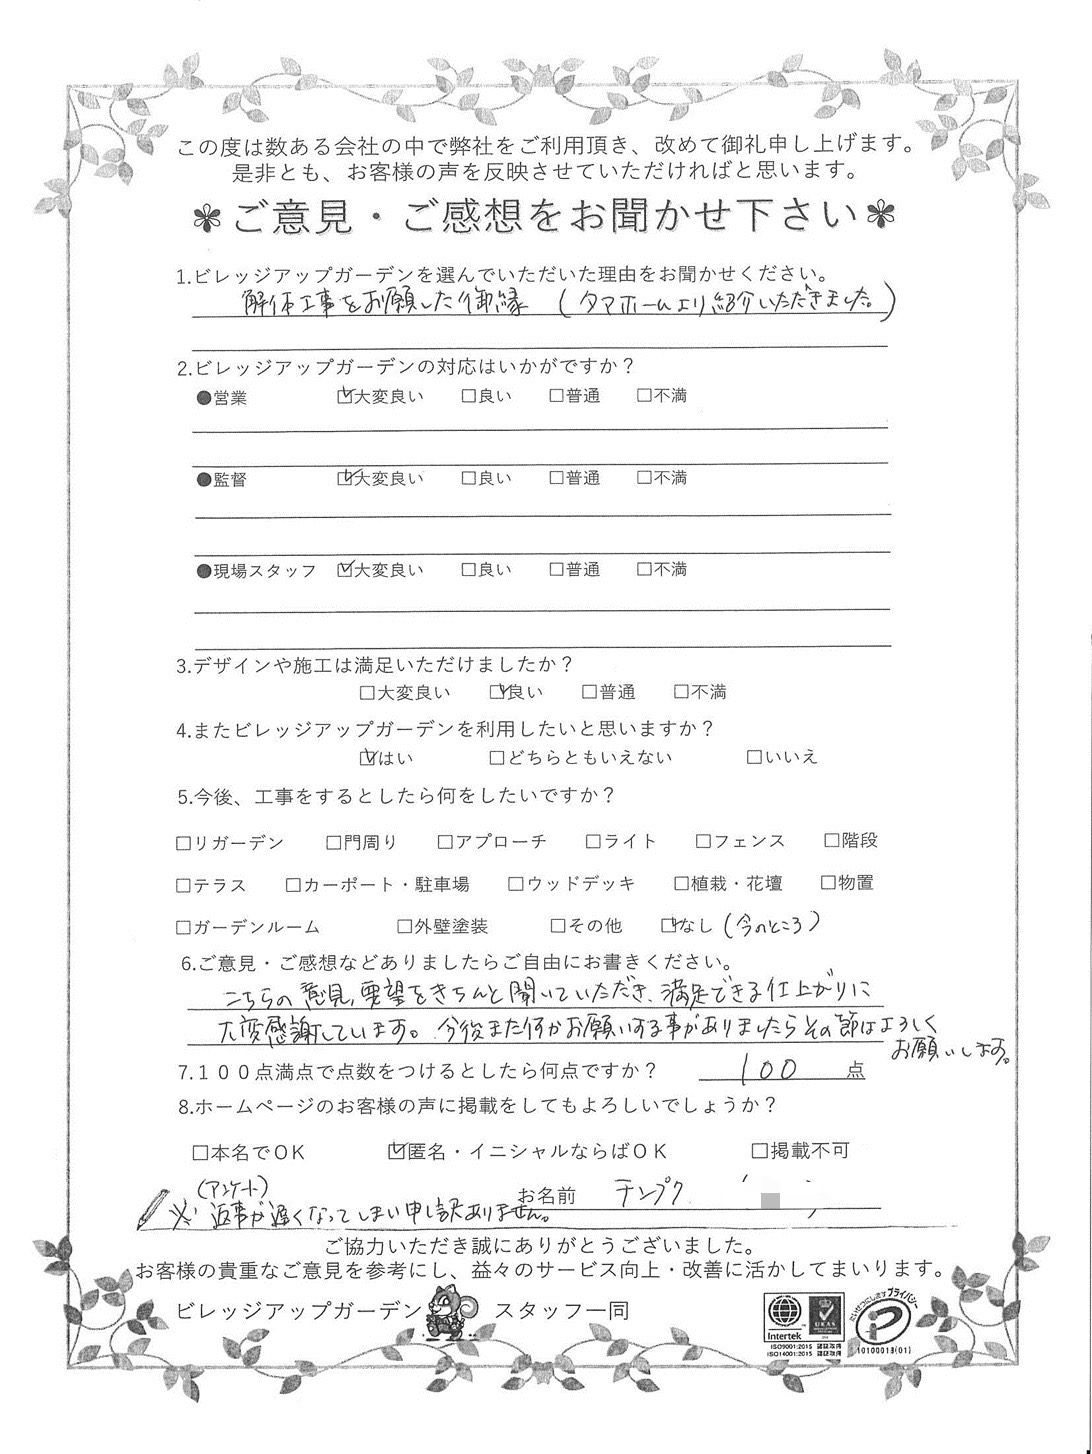 この度は数ある会社の中で弊社をご利用頂き、改めて御礼申し上げます。
是非とも、お客様の声を反映させていただければと思います。
ご意見・ご感想をお聞かせ下さい
1.ビレッジアップガーデンを選んでいただいた理由をお聞かせください。
解体工事をお願いした御縁 (タマホームより紹介いただきました。)
2.ビレッジアップガーデンの対応はいかがですか？
●営業 ☑大変良い □良い □普通 □不満
●監督 ☑大変良い □良い □普通 □不満
●現場スタッフ ☑大変良い □良い □普通 □不満
3.デザインや施工は満足いただけましたか？
□大変良い ☑良い □普通 □不満
4.またビレッジアップガーデンを利用したいと思いますか？
☑はい □どちらともいえない □いいえ
5.今後、工事をするとしたら何をしたいですか？
□リガーデン □門周り □アプローチ □ライト □フェンス □階段
□テラス □カーポート・駐車場 □ウッドデッキ □植栽・花壇 □物置
□ガーデンルーム □外壁塗装 □その他 ☑なし (今のところ)
6.ご意見・ご感想などありましたらご自由にお書きください。
こちらの意見、要望をきちんと聞いていただき、満足できる仕上がりに
大変感謝しています。今後また何かお願いする事がありましたらその節はよろしく
お願いします。
7.１００点満点で点数をつけるとしたら何点ですか？ 100 点
8.ホームページのお客様の声に掲載をしてもよろしいでしょうか？
□本名でOK ☑匿名・イニシャルならばOK □掲載不可
(アンケート)
お名前 テンプク
※返事が遅くなってしまい申し訳ありません。
ご協力いただき誠にありがとうございました。
お客様の貴重なご意見を参考にし、益々のサービス向上・改善に活かしてまいります。
ビレッジアップガーデン スタッフ一同
Intertek
UKAS
ISO9001:2015 認証取得
ISO14001:2015 認証取得
たいせつにしますプライバシー
10100013(01)